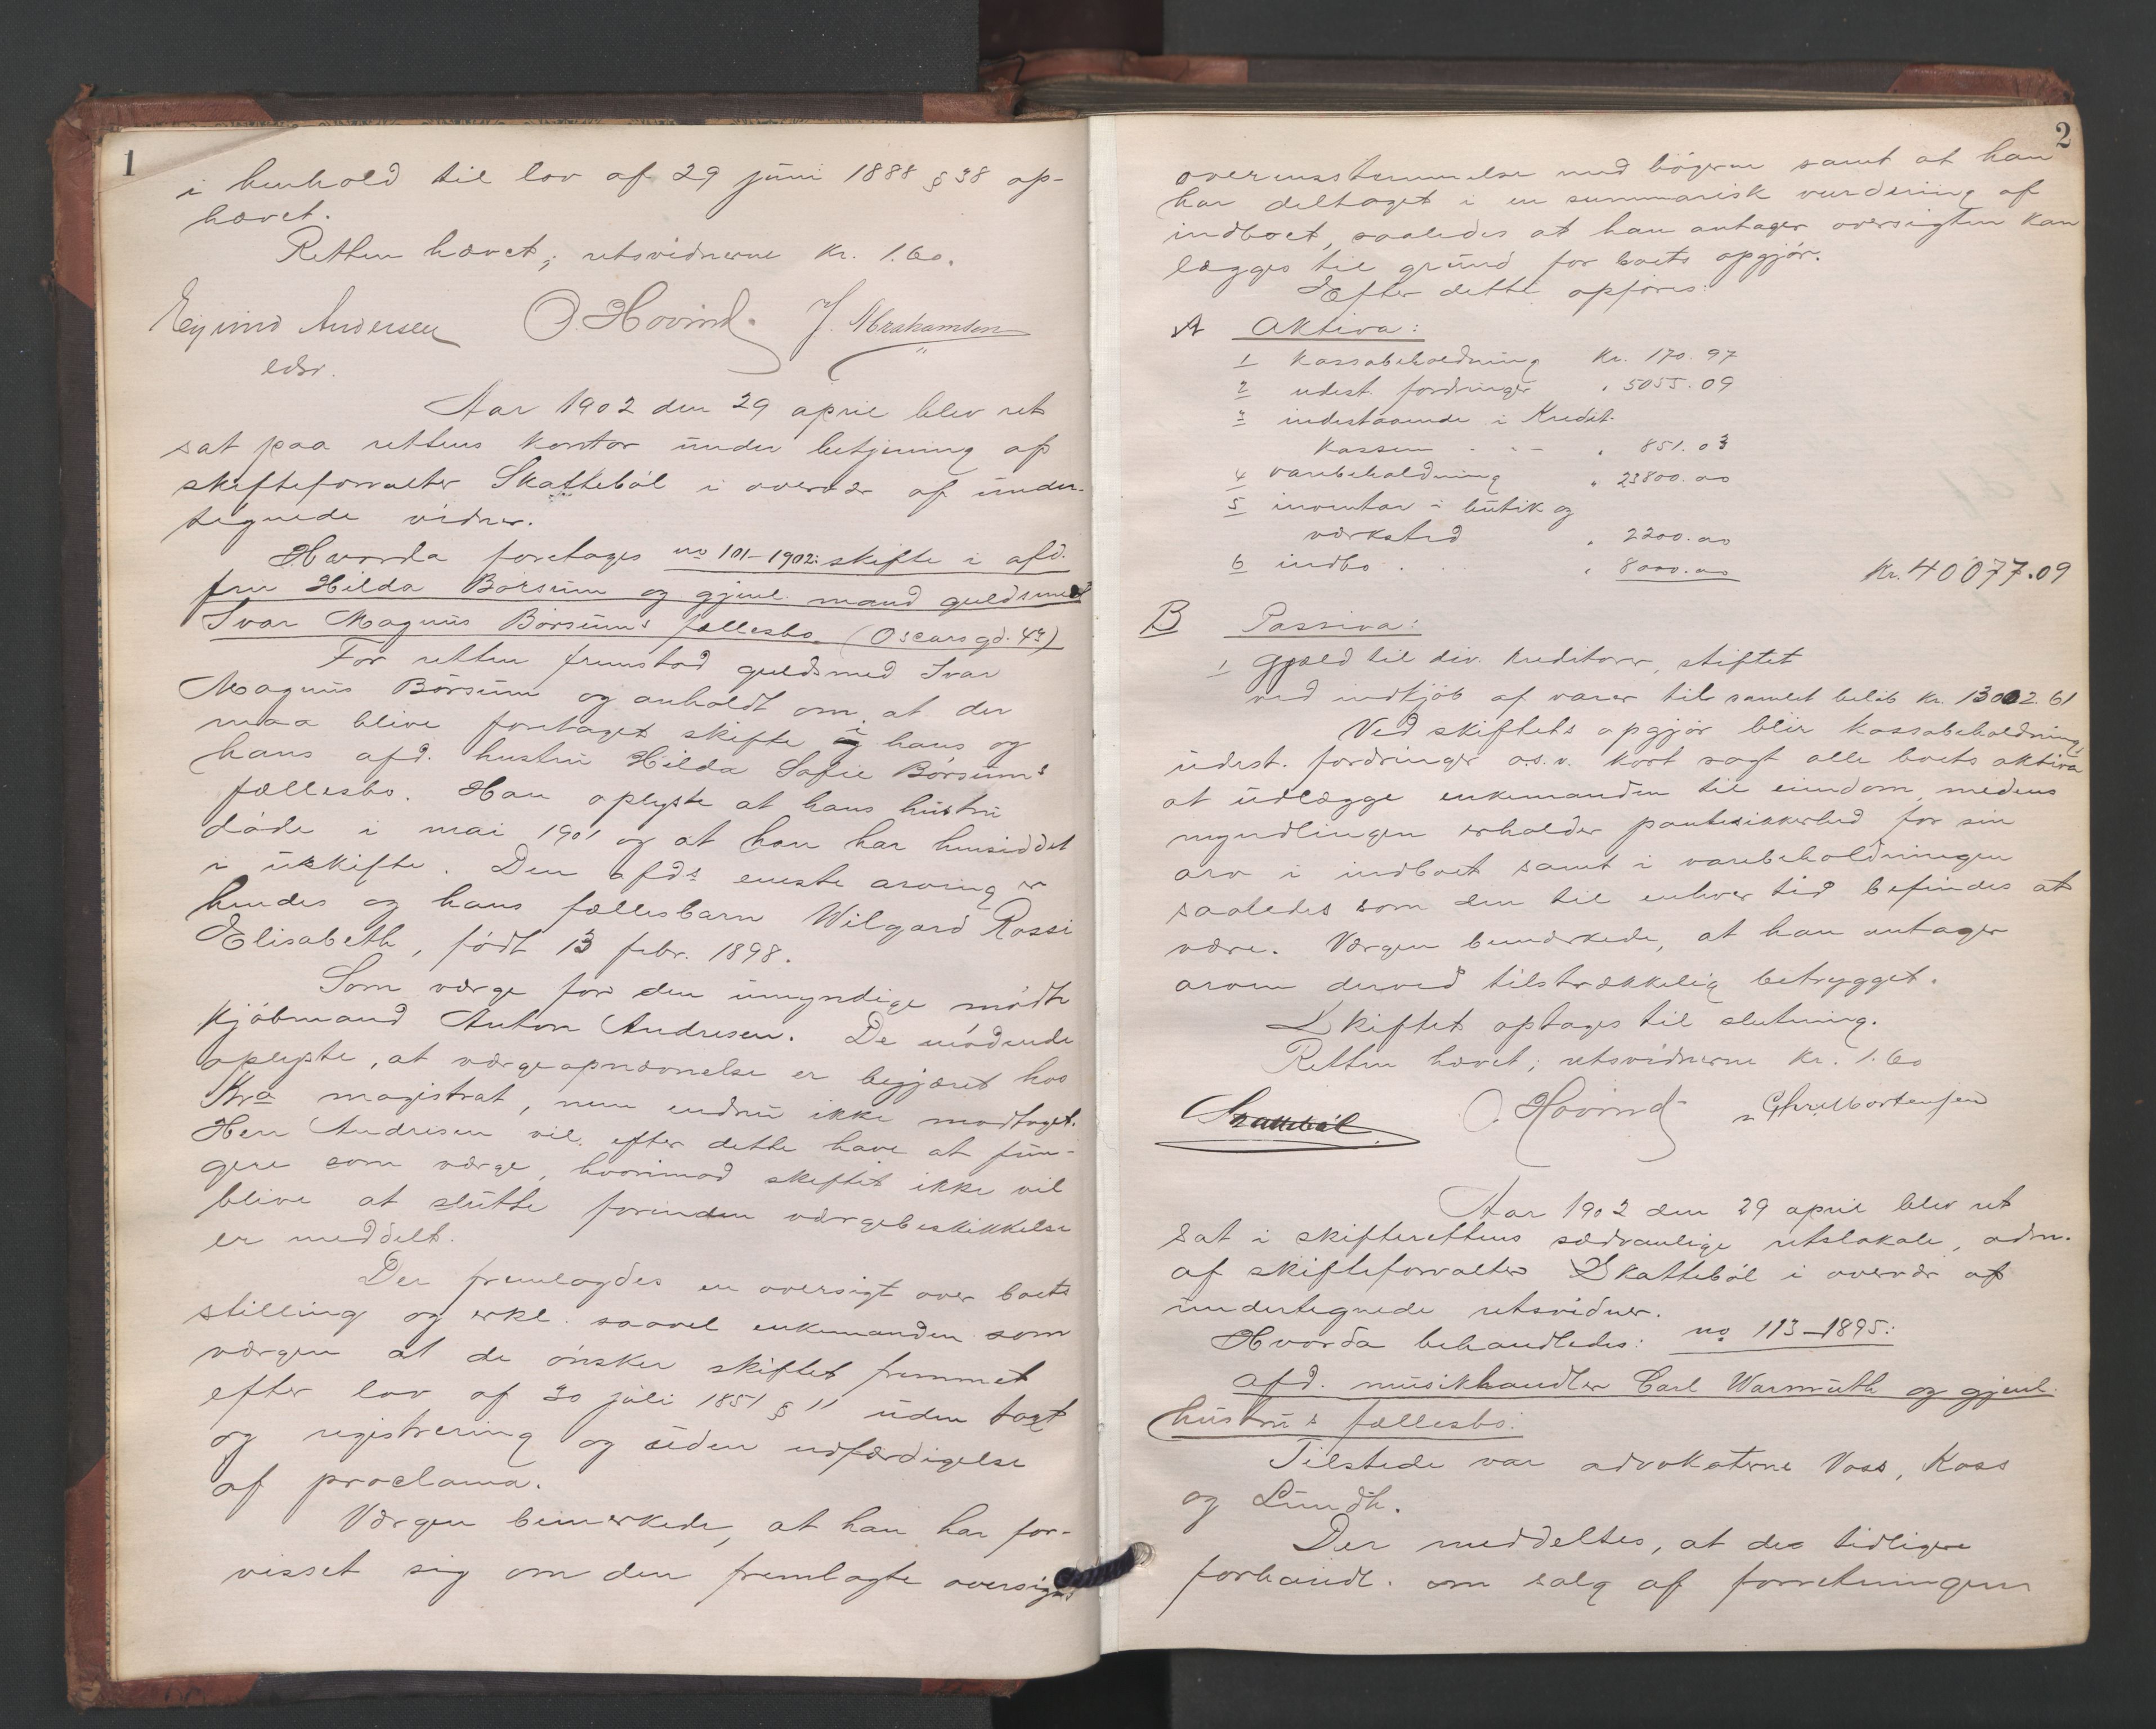 1
i henhold til lov af 29 juni 1888 § 38 op-
hævet.
Retten hævet; retsvidnerne Kr. 1.60.
Eyvind Andersen O. Hovind. J. Abrahamsen
edsv.
Aar 1902 den 29 april blev ret
sat paa rettens kontor under betjening af
skifteforvalter Skattebøl i overvær af under-
tegnede vidner.
Hvorda foretages no 101-1902: skifte i afd.
fru Hilda Børsum og gjenl. mand guldsmed
Ivar Magnus Børsums fællesbo. (Oscarsgd. 43)
For retten fremstod guldsmed Ivar
Magnus Børsum og anholdt om, at der
maa blive foretaget skifte i hans og
hans afd. hustru Hilda Sofie Børsums
fællesbo. Han oplyste at hans hustru
døde i mai 1901 og at han har hensiddet
i uskifte. Den afds eneste arving er
hendes og hans fællesbarn Wilgard Rossi
Elisabeth, født 13 febr. 1898.
Som værge for den umyndige mødte
kjøbmand Anton Andresen. De mødende
oplyste, at værgeopnævnelse er begjæret hos
Kra magistrat, men endnu ikke modtaget.
Herr Andresen vil efter dette have at fun-
gere som værge, hvorimod skiftet ikke vil
blive at slutte forinden værgebeskikkelse
er meddelt.
Der fremlagdes en oversigt over boets
stilling og erkl. saavel enkemanden som
værgen at de ønsker skiftet fremmet
efter lov af 30 juli 1851 § 11 uden taxt
og registrering og uden udfærdigelse
af proclama.
Værgen bemerkede, at han har for-
visset sig om den fremlagte oversigts
2
overensstemmelse med bøgerne samt at han
har deltaget i en summarisk vurdering af
indboet, saaledes at han antager oversigten kan
lægges til grund for boets opgjør.
Efter dette opføres:
A Aktiva:
1 kassabeholdning Kr. 170.97
2 udest. fordringer " 5055.09
3 indestaaende i Kredit-
kassen - - - " 851.03
4 varebeholdning " 23800.00
5 inventar i butik og
værksted " 2200.00
6 indbo . . " 8000.00 Kr. 40077.09
B Passiva:
1 gjæld til div. kreditorer, stiftet
ved indkjøb af varer til samlet beløb Kr. 13002.61
Ved skiftets opgjør blir kassabeholdning,
udest. fordringer o.s.v. kort sagt alle boets aktiva
at udlægge enkemanden til eiendom, medens
myndlingen erholder pantesikkerhed for sin
arv i indboet samt i varebeholdningen
saaledes som den til enhver tid befindes at
være. Værgen bemerkede, at han antager
arven derved tilstrækkelig betrygget.
Skiftet optages til slutning.
Retten hævet; retsvidnerne Kr. 1.60
Skattebøl. O. Hovind Chr. Mortensen
Aar 1902 den 29 april blev ret
sat i skifterettens sædvanlige retslokale, adm.
af skifteforvalter Skattebøl i overvær af
undertegnede retsvidner.
Hvorda behandledes: no 113-1895:
afd. musikhandler Carl Warmuth og gjenl.
hustru's fællesbo.
Tilstede var advokaterne Voss, Koss
og Lundh.
Der meddeltes, at de tidligere
forhandl. om salg af forretningen